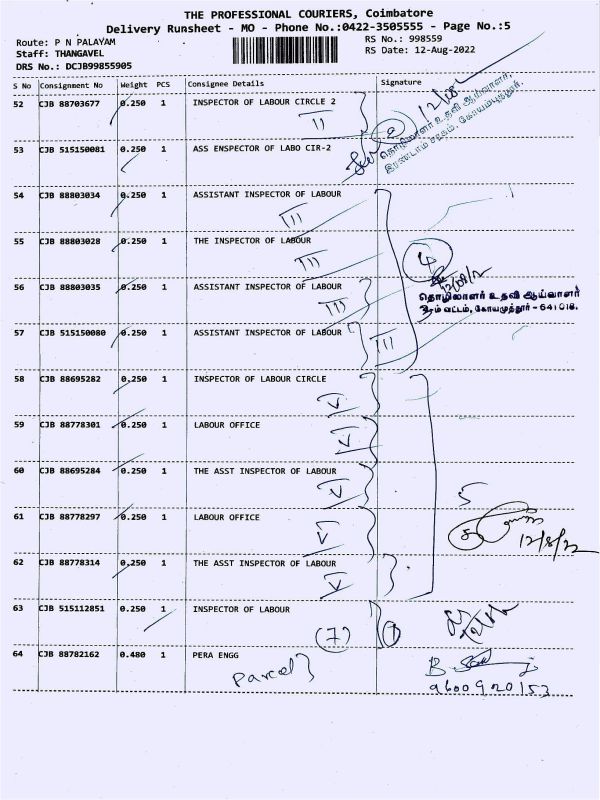 THE PROFESSIONAL COURIERS, Coimbatore
Delivery Runsheet - MO - Phone No.:0422-3505555 - Page No.:5
Route: P N PALAYAM
RS No.: 998559
Staff: THANGAVEL
RS Date: 12-Aug-2022
DRS No.: DCJB99855905
S No Consignment No Weight PCS Consignee Details Signature
52 CJB 88703677 0.250 1 INSPECTOR OF LABOUR CIRCLE 2
II
2
12/08
தொழிலாளர் உதவி ஆய்வாளர்,
இரண்டாம் சரகம், கோயம்புத்தூர்.
53 CJB 515150081 0.250 1 ASS ENSPECTOR OF LABO CIR-2
54 CJB 88803034 0.250 1 ASSISTANT INSPECTOR OF LABOUR
III
55 CJB 88803028 0.250 1 THE INSPECTOR OF LABOUR
III
4
12/08/22
56 CJB 88803035 0.250 1 ASSISTANT INSPECTOR OF LABOUR
III
தொழிலாளர் உதவி ஆய்வாளர்
3ம் வட்டம், கோயமுத்தூர் - 641 018.
57 CJB 515150080 0.250 1 ASSISTANT INSPECTOR OF LABOUR
III
58 CJB 88695282 0.250 1 INSPECTOR OF LABOUR CIRCLE
V
59 CJB 88778301 0.250 1 LABOUR OFFICE
V
60 CJB 88695284 0.250 1 THE ASST INSPECTOR OF LABOUR
V
5
61 CJB 88778297 0.250 1 LABOUR OFFICE
V
12/8/22
62 CJB 88778314 0.250 1 THE ASST INSPECTOR OF LABOUR
V
63 CJB 515112851 0.250 1 INSPECTOR OF LABOUR
(7)
1
64 CJB 88782162 0.480 1 PERA ENGG
Parcel
9600920153